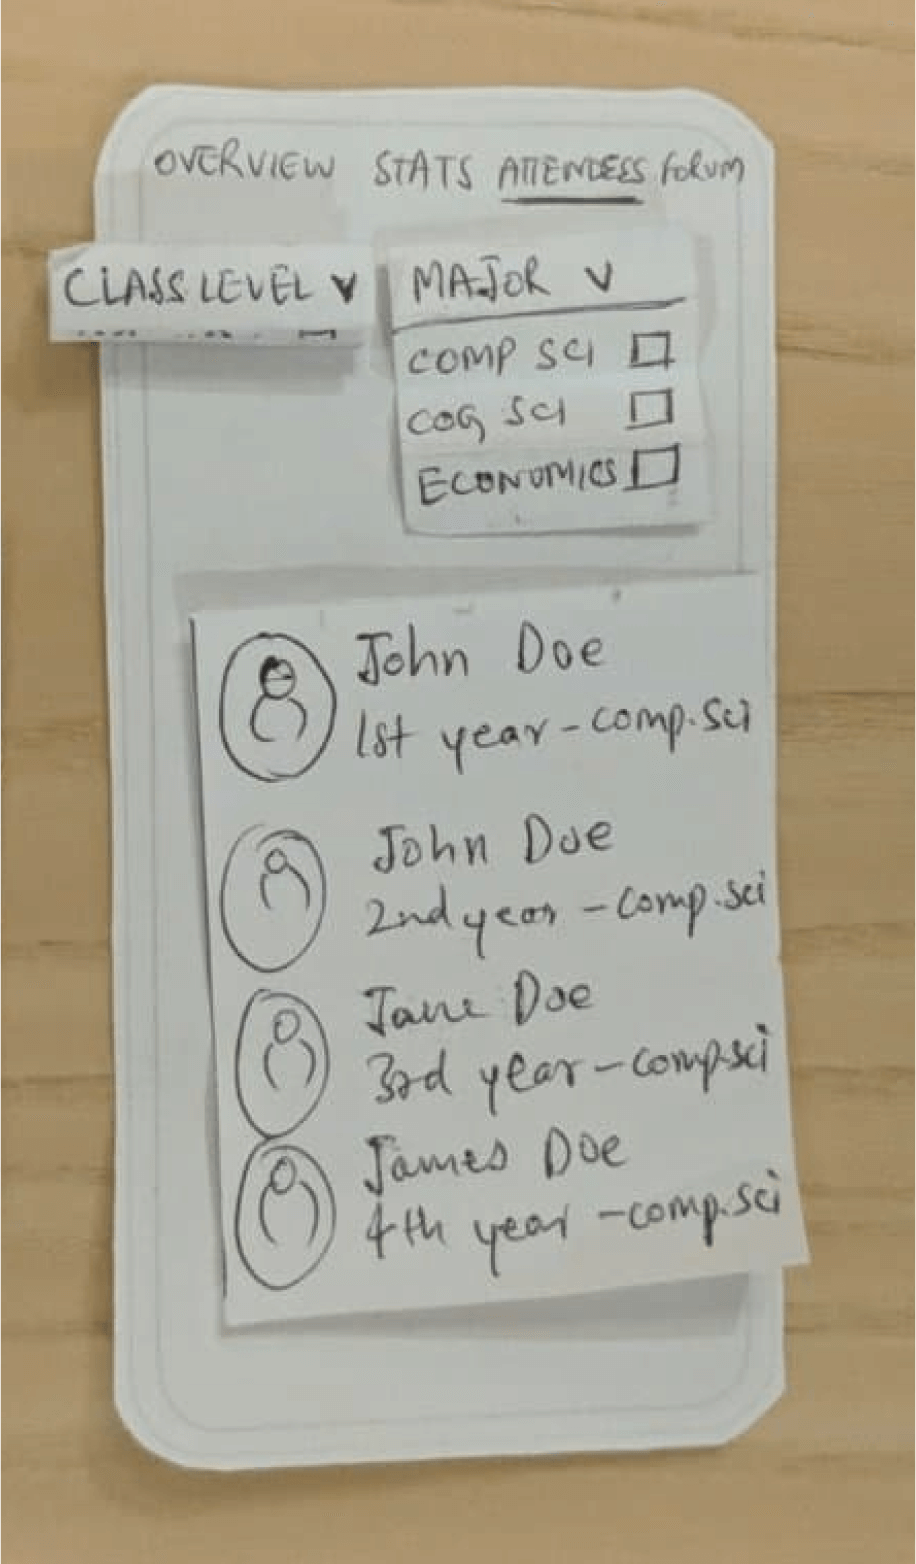 OVERVIEW STATS ATTENDESS FORUM
CLASS LEVEL v
MAJOR v
COMP SCI
COG SCI
ECONOMICS
John Doe
1st year - comp.sci
John Doe
2nd year - comp.sci
Jane Doe
3rd year - comp.sci
James Doe
4th year - comp.sci